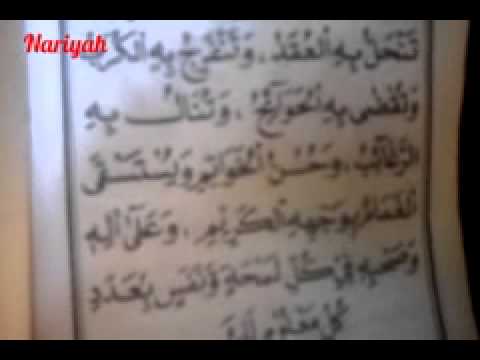 Nariyah
تَنْحَلُّ بِهِ الْعُقَدُ، وَتَنْفَرِجُ بِهِ الْكُرَبُ
وَتُقْضَى بِهِ الْحَوَائِجُ، وَتُنَالُ بِهِ
الرَّغَائِبُ، وَحُسْنُ الْخَوَاتِمِ وَيُسْتَسْقَى
الْغَمَامُ بِوَجْهِهِ الْكَرِيْمِ، وَعَلَى آلِهِ
وَصَحْبِهِ فِي كُلِّ لَمْحَةٍ وَنَفَسٍ بِعَدَدِ
كُلِّ مَعْلُوْمٍ لَكَ